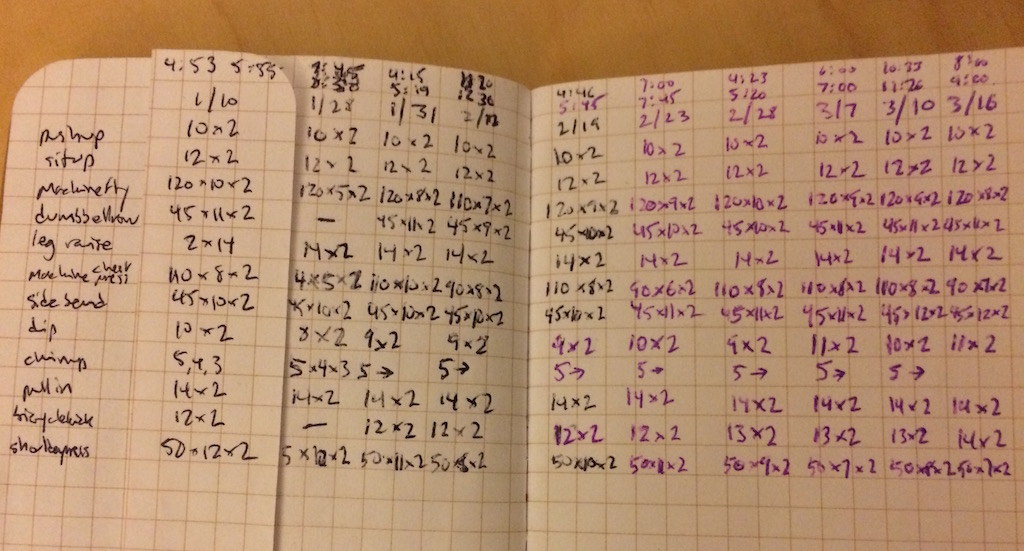 4:53 5:55 4:15 4:46 7:00 4:23 6:00 10:35 8:00
5:19 12:30 5:45 7:45 5:20 7:00 11:26 9:00
1/10 1/28 1/31 2/19 2/23 2/28 3/7 3/10 3/16
pushup 10×2 10×2 10×2 10×2 10×2 10×2 10×2 10×2 10×2 10×2
situp 12×2 12×2 12×2 12×2 12×2 12×2 12×2 12×2 12×2 12×2
Machine fly 120×10×2 120×5×2 120×8×2 110×7×2 120×9×2 120×9×2 120×10×2 120×9×2 120×9×2 120×8×2
dumbbell row 45×11×2 — 45×11×2 45×9×2 45×10×2 45×10×2 45×10×2 45×11×2 45×11×2 45×11×2
leg raise 2×14 14×2 14×2 14×2 14×2 14×2 14×2 14×2 14×2 14×2
Machine chest press 110×8×2 4×5×2 110×10×2 90×8×2 110×8×2 90×6×2 110×8×2 110×8×2 110×8×2 90×7×2
side bend 45×10×2 45×10×2 45×10×2 45×10×2 45×10×2 45×11×2 45×11×2 45×11×2 45×12×2 45×12×2
dip 10×2 8×2 9×2 9×2 9×2 10×2 9×2 11×2 10×2 11×2
chinup 5,4,3 5×4×3 5→ 5→ 5→ 5→ 5→ 5→ 5→
pull in 14×2 14×2 14×2 14×2 14×2 14×2 14×2 14×2 14×2 14×2
bicycle kick 12×2 — 12×2 12×2 12×2 12×2 13×2 13×2 13×2 14×2
shoulder press 50×12×2 5×12×2 50×11×2 50×8×2 50×10×2 50×11×2 50×9×2 50×7×2 50×8×2 50×7×2